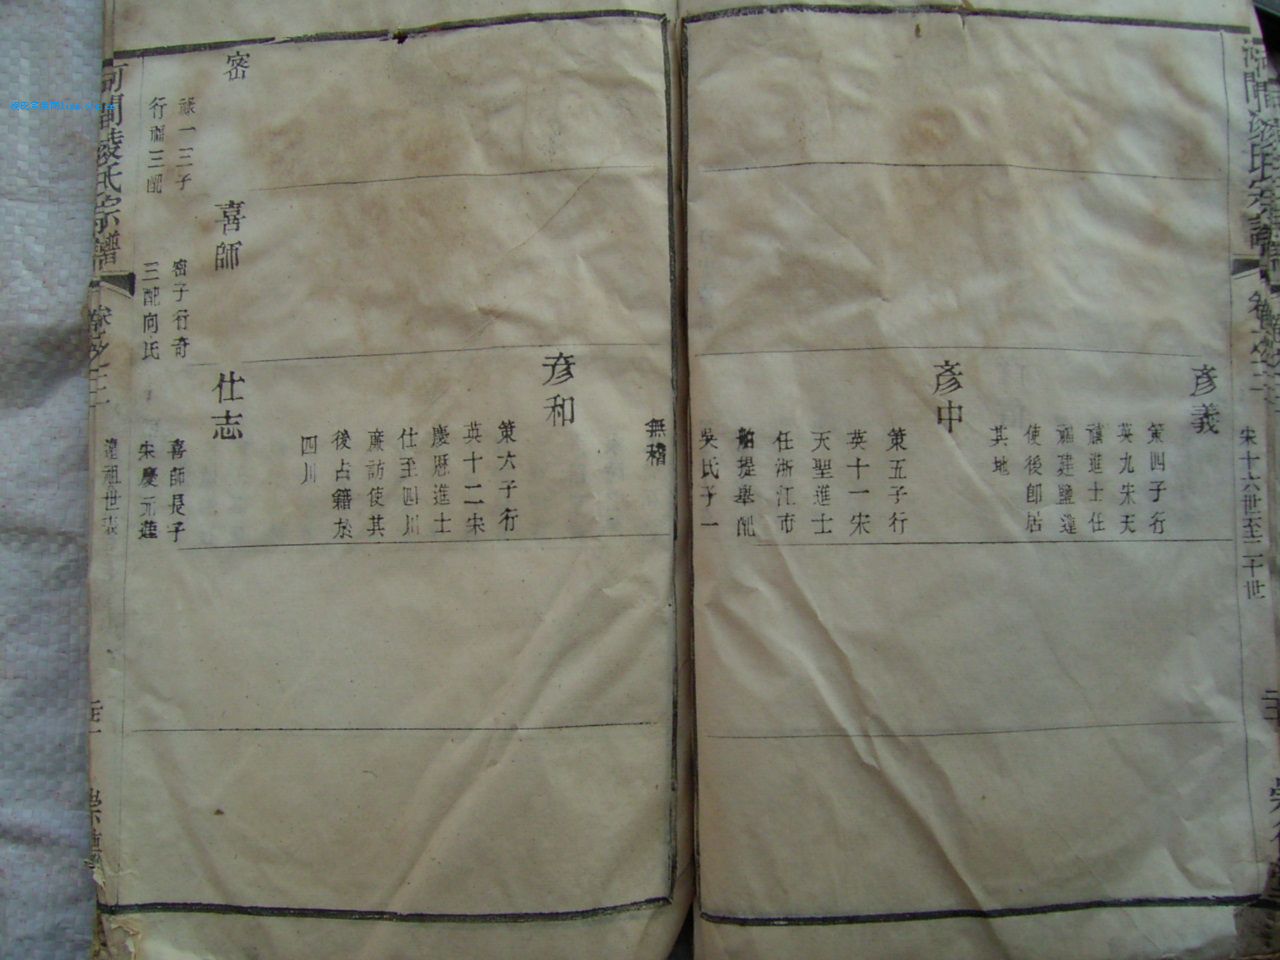 河間凌氏宗譜
卷之三
宋十六世至二十世
彦義
策四子行
英九宋天
禧進士任
福建鹽運
使後卽居
其地
彦中
策五子行
英十一宋
天聖進士
任浙江市
舶提舉配
吳氏子一
無稽
彦和
策六子行
英十二宋
慶曆進士
仕至四川
廉訪使其
後占籍於
四川
密
祿一三子
行福三配
喜師
密子行奇
三配向氏
仕志
喜師長子
朱慶元蓮
河間凌氏宗譜
卷之三
蓮祖世表